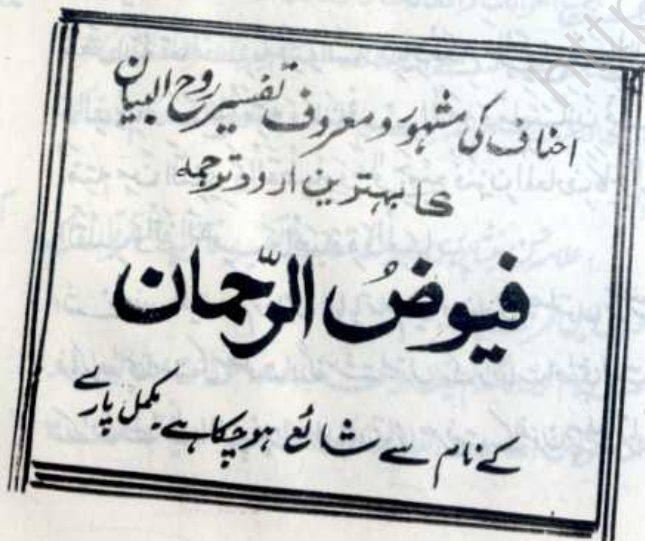 احناف کی مشہور و معروف تفسیر روح البیان
کا بہترین اردو ترجمہ
فیوضُ الرّحمان
کے نام سے شائع ہوچکا ہے مکمل پارے